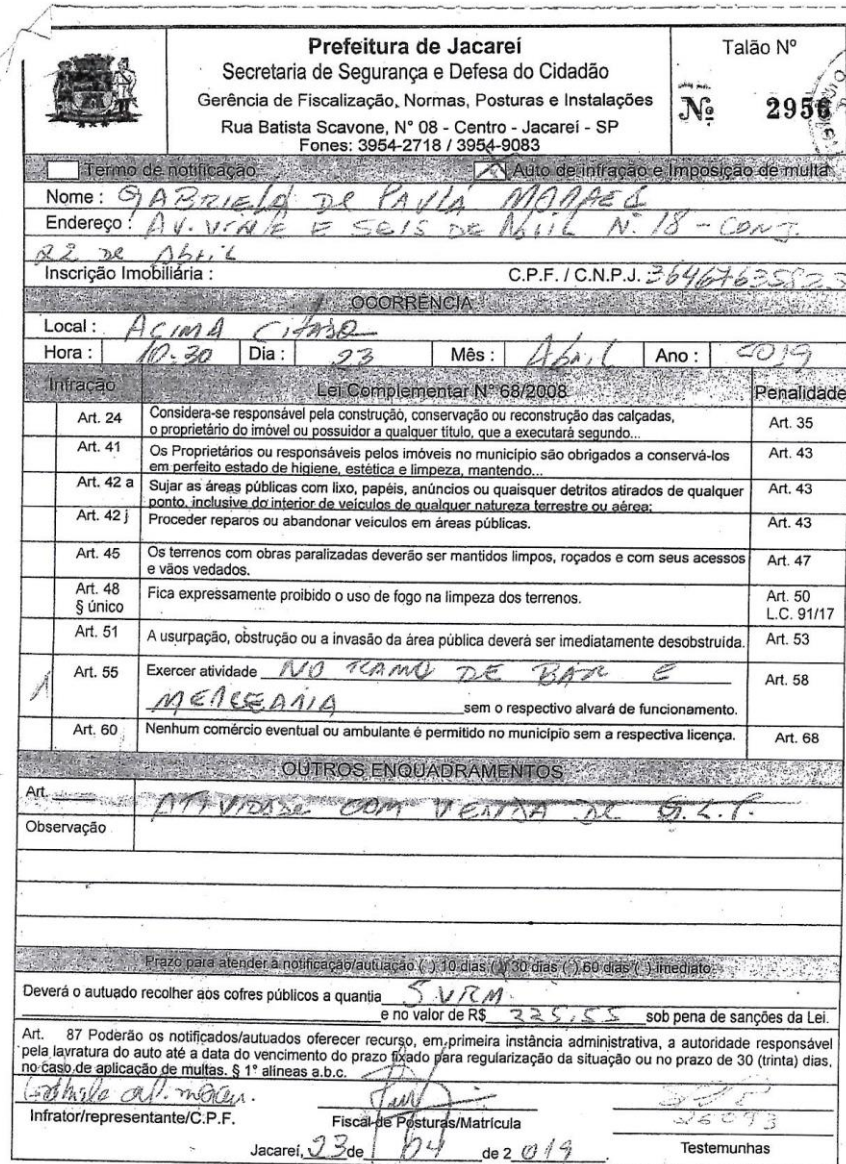 Prefeitura de Jacareí
Secretaria de Segurança e Defesa do Cidadão
Gerência de Fiscalização, Normas, Posturas e Instalações
Rua Batista Scavone, N° 08 - Centro - Jacareí - SP
Fones: 3954-2718 / 3954-9083
Talão Nº
Nº 2956
Termo de notificação X Auto de infração e Imposição de multa
Nome : GABRIELA DE PAULA MORAES
Endereço : AV. VINTE E SEIS DE ABRIL N. 18 - CONJ.
22 DE Abril
Inscrição Imobiliária : C.P.F. / C.N.P.J.
OCORRÊNCIA
Local : ACIMA CITADO
Hora : 10:30 Dia : 23 Mês : Abril Ano : 2019
Infração Lei Complementar N° 68/2008 Penalidade
Art. 24 Considera-se responsável pela construção, conservação ou reconstrução das calçadas, Art. 35
o proprietário do imóvel ou possuidor a qualquer titulo, que a executará segundo...
Art. 41 Os Proprietários ou responsáveis pelos imóveis no município são obrigados a conservá-los Art. 43
em perfeito estado de higiene, estética e limpeza, mantendo...
Art. 42 a Sujar as áreas públicas com lixo, papéis, anúncios ou quaisquer detritos atirados de qualquer Art. 43
ponto, inclusive do interior de veículos de qualquer natureza terrestre ou aérea;
Art. 42 j Proceder reparos ou abandonar veículos em áreas públicas. Art. 43
Art. 45 Os terrenos com obras paralizadas deverão ser mantidos limpos, roçados e com seus acessos Art. 47
e vãos vedados.
Art. 48 § único Fica expressamente proibido o uso de fogo na limpeza dos terrenos. Art. 50 L.C. 91/17
Art. 51 A usurpação, obstrução ou a invasão da área pública deverá ser imediatamente desobstruída. Art. 53
Art. 55 Exercer atividade NO RAMO DE BAR E Art. 58
MERCEARIA sem o respectivo alvará de funcionamento.
Art. 60 Nenhum comércio eventual ou ambulante é permitido no município sem a respectiva licença. Art. 68
OUTROS ENQUADRAMENTOS
Art. ATIVIDADE COM VENDA DE G.L.P.
Observação
Prazo para atender à notificação/autuação ( ) 10 dias (X) 30 dias ( ) 60 dias ( ) imediato
Deverá o autuado recolher aos cofres públicos a quantia 5 VRM
e no valor de R$ 225,55 sob pena de sanções da Lei.
Art. 87 Poderão os notificados/autuados oferecer recurso, em primeira instância administrativa, a autoridade responsável
pela lavratura do auto até a data do vencimento do prazo fixado para regularização da situação ou no prazo de 30 (trinta) dias,
no caso de aplicação de multas. § 1° alineas a.b.c.
Infrator/representante/C.P.F. Fiscal de Posturas/Matrícula
Jacareí, 23 de 04 de 2019. Testemunhas